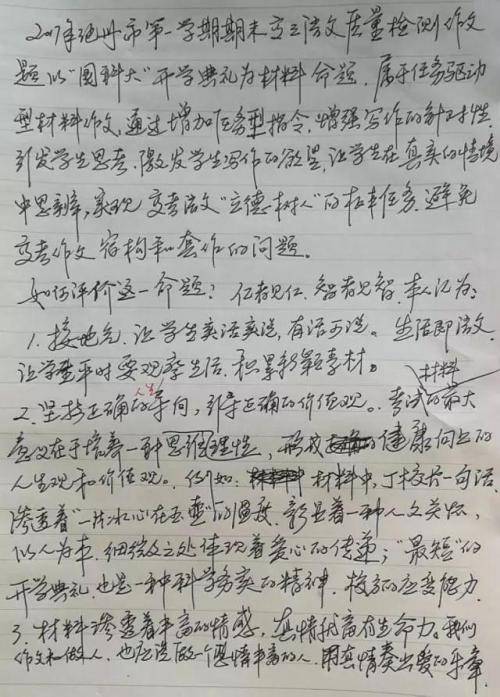 2017年绍兴市第一学期期末高三语文质量检测作文
题以"国科大"开学典礼为材料命题，属于任务驱动
型材料作文，通过增加任务型指令，增强写作的针对性，
引发学生思考，激发学生写作的欲望，让学生在真实的情境
中思辨，实现高考语文"立德树人"的根本任务，避免
高考作文宿构和套作的问题。
如何评价这一命题？仁者见仁，智者见智，本人认为：
1. 接地气，让学生实话实说，有话可说。生活即语文，
让学生平时要观察生活，积累新颖素材。
2. 坚持正确的人生导向，引导正确的价值观。材料考试的最大
意义在于培养一种思维理性，形成健康向上的
人生观和价值观。例如：材料中，丁校长一句话
渗透着"一片冰心在玉壶"的温度，彰显着一种人文关怀，
以人为本，细微之处体现着爱心的传递；"最短"的
开学典礼，也是一种科学务实的精神，校方的应变能力。
3. 材料渗透着丰富的情感，真情才富有生命力。我们
作文和做人，也应该做一个感情丰富的人，用真情奏出爱的乐章